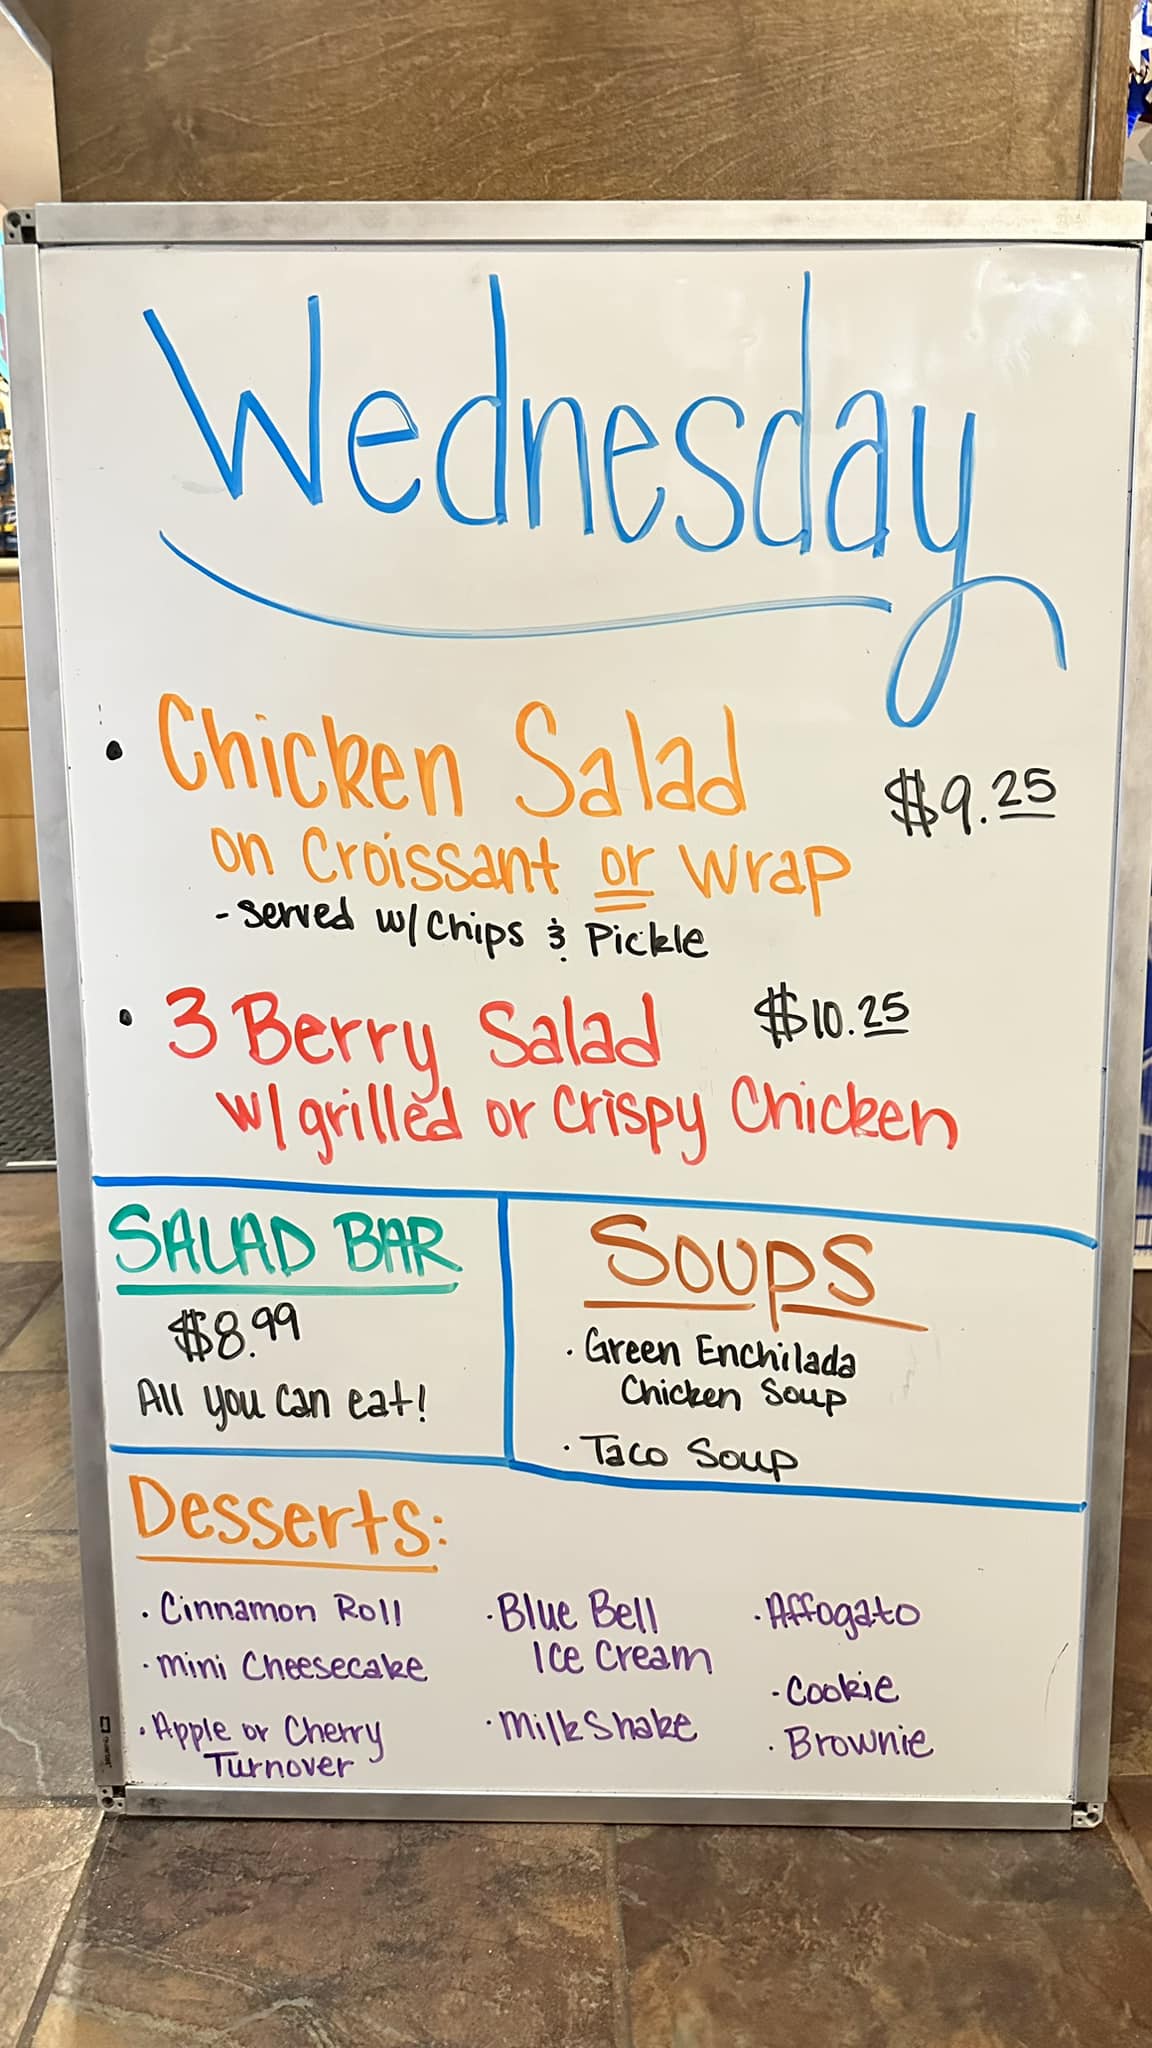 Wednesday
• Chicken Salad
$9.25
on Croissant or Wrap
- served w/ Chips & Pickle
• 3 Berry Salad
$10.25
w/ grilled or Crispy Chicken
SALAD BAR
$8.99
All you can eat!
Soups
• Green Enchilada
Chicken Soup
• Taco Soup
Desserts:
• Cinnamon Roll
• Mini Cheesecake
• Apple or Cherry
Turnover
• Blue Bell
Ice Cream
• MilkShake
• Affogato
• Cookie
• Brownie